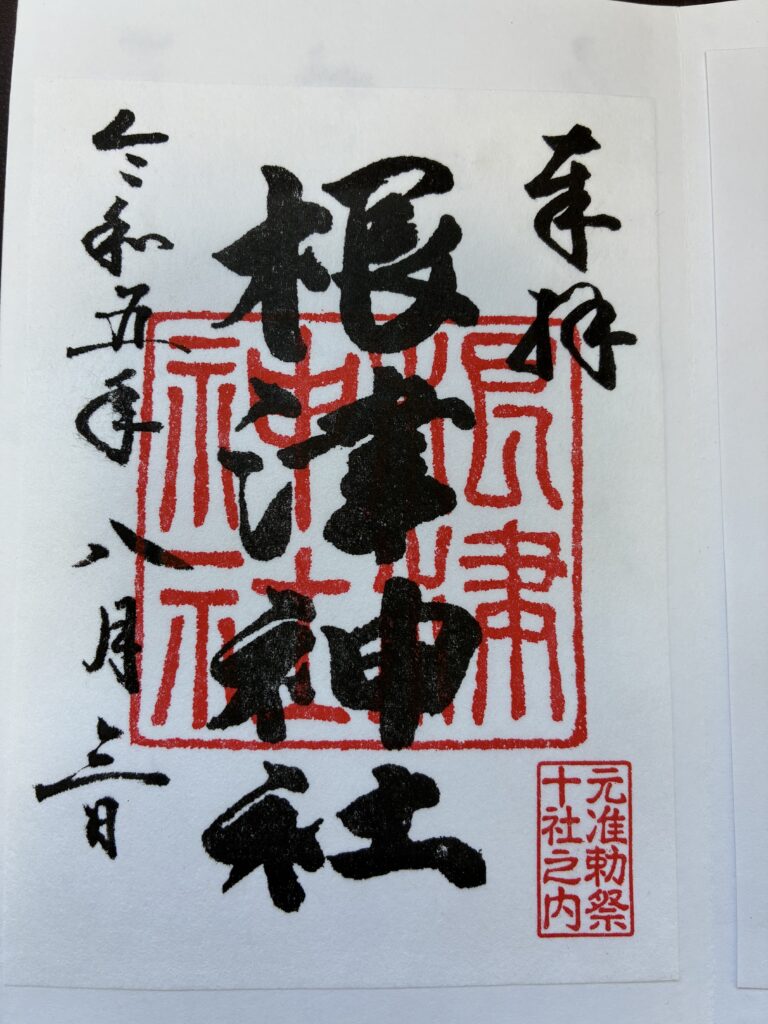 奉拝
根津神社
根津神社
元准勅祭
十社之内
令和五年八月三日